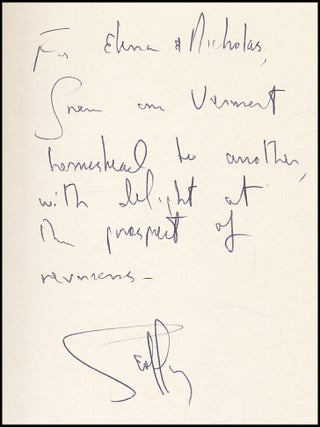 For Elena & Nicholas,
From one Vermont
homestead to another,
with delight at
the prospect of
reunions –
Geoffrey